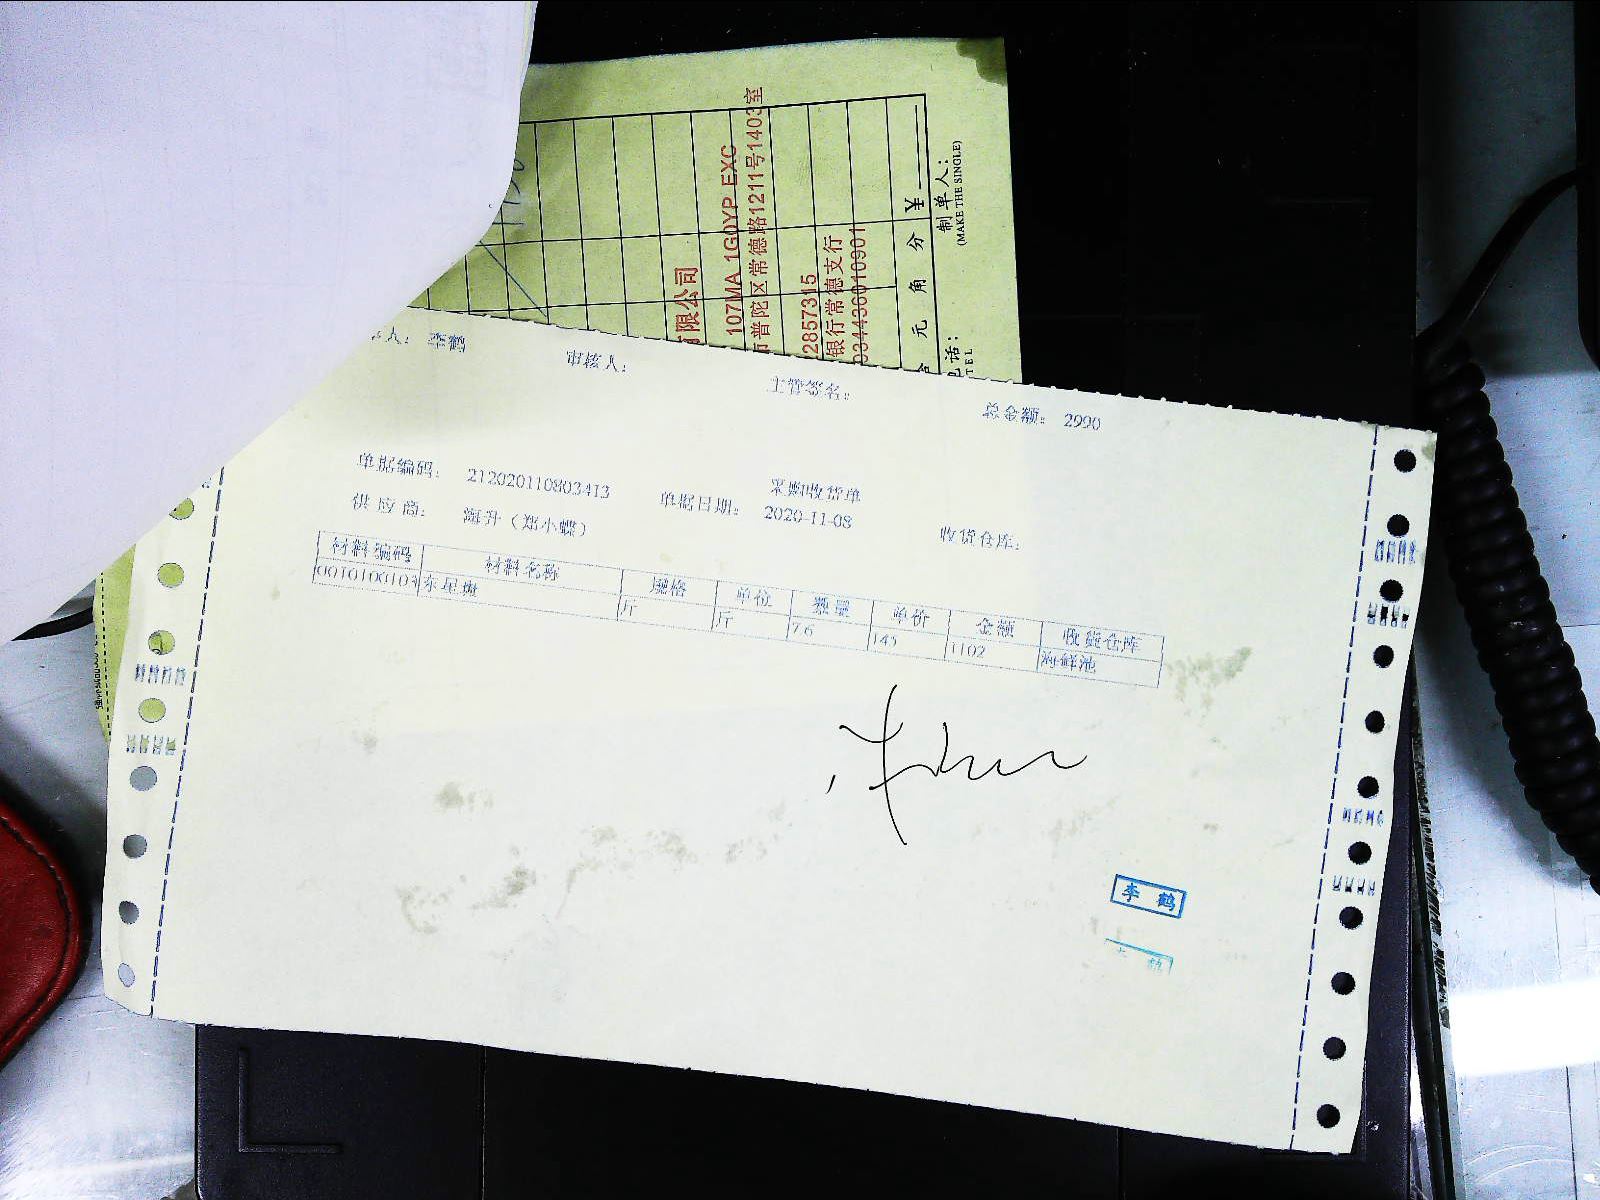 有限公司
107MA 1G0YP EXC
市普陀区常德路1211号1403室
2857315
银行常德支行
03443601090
元 角 分 ¥
制单人:
(MAKE THE SINGLE)
电话:
TEL
人: 李鹤
审核人:
主管签名:
总金额: 2990
采购收货单
单据编码: 212020110803413
单据日期: 2020-11-08
供 应 商: 海升（郑小蝶）
收货仓库:
材料编码 材料名称 规格 单位 数量 单价 金额 收货仓库
东星斑 斤 斤 7.6 145 1102 海鲜池
李 鹤
鹤